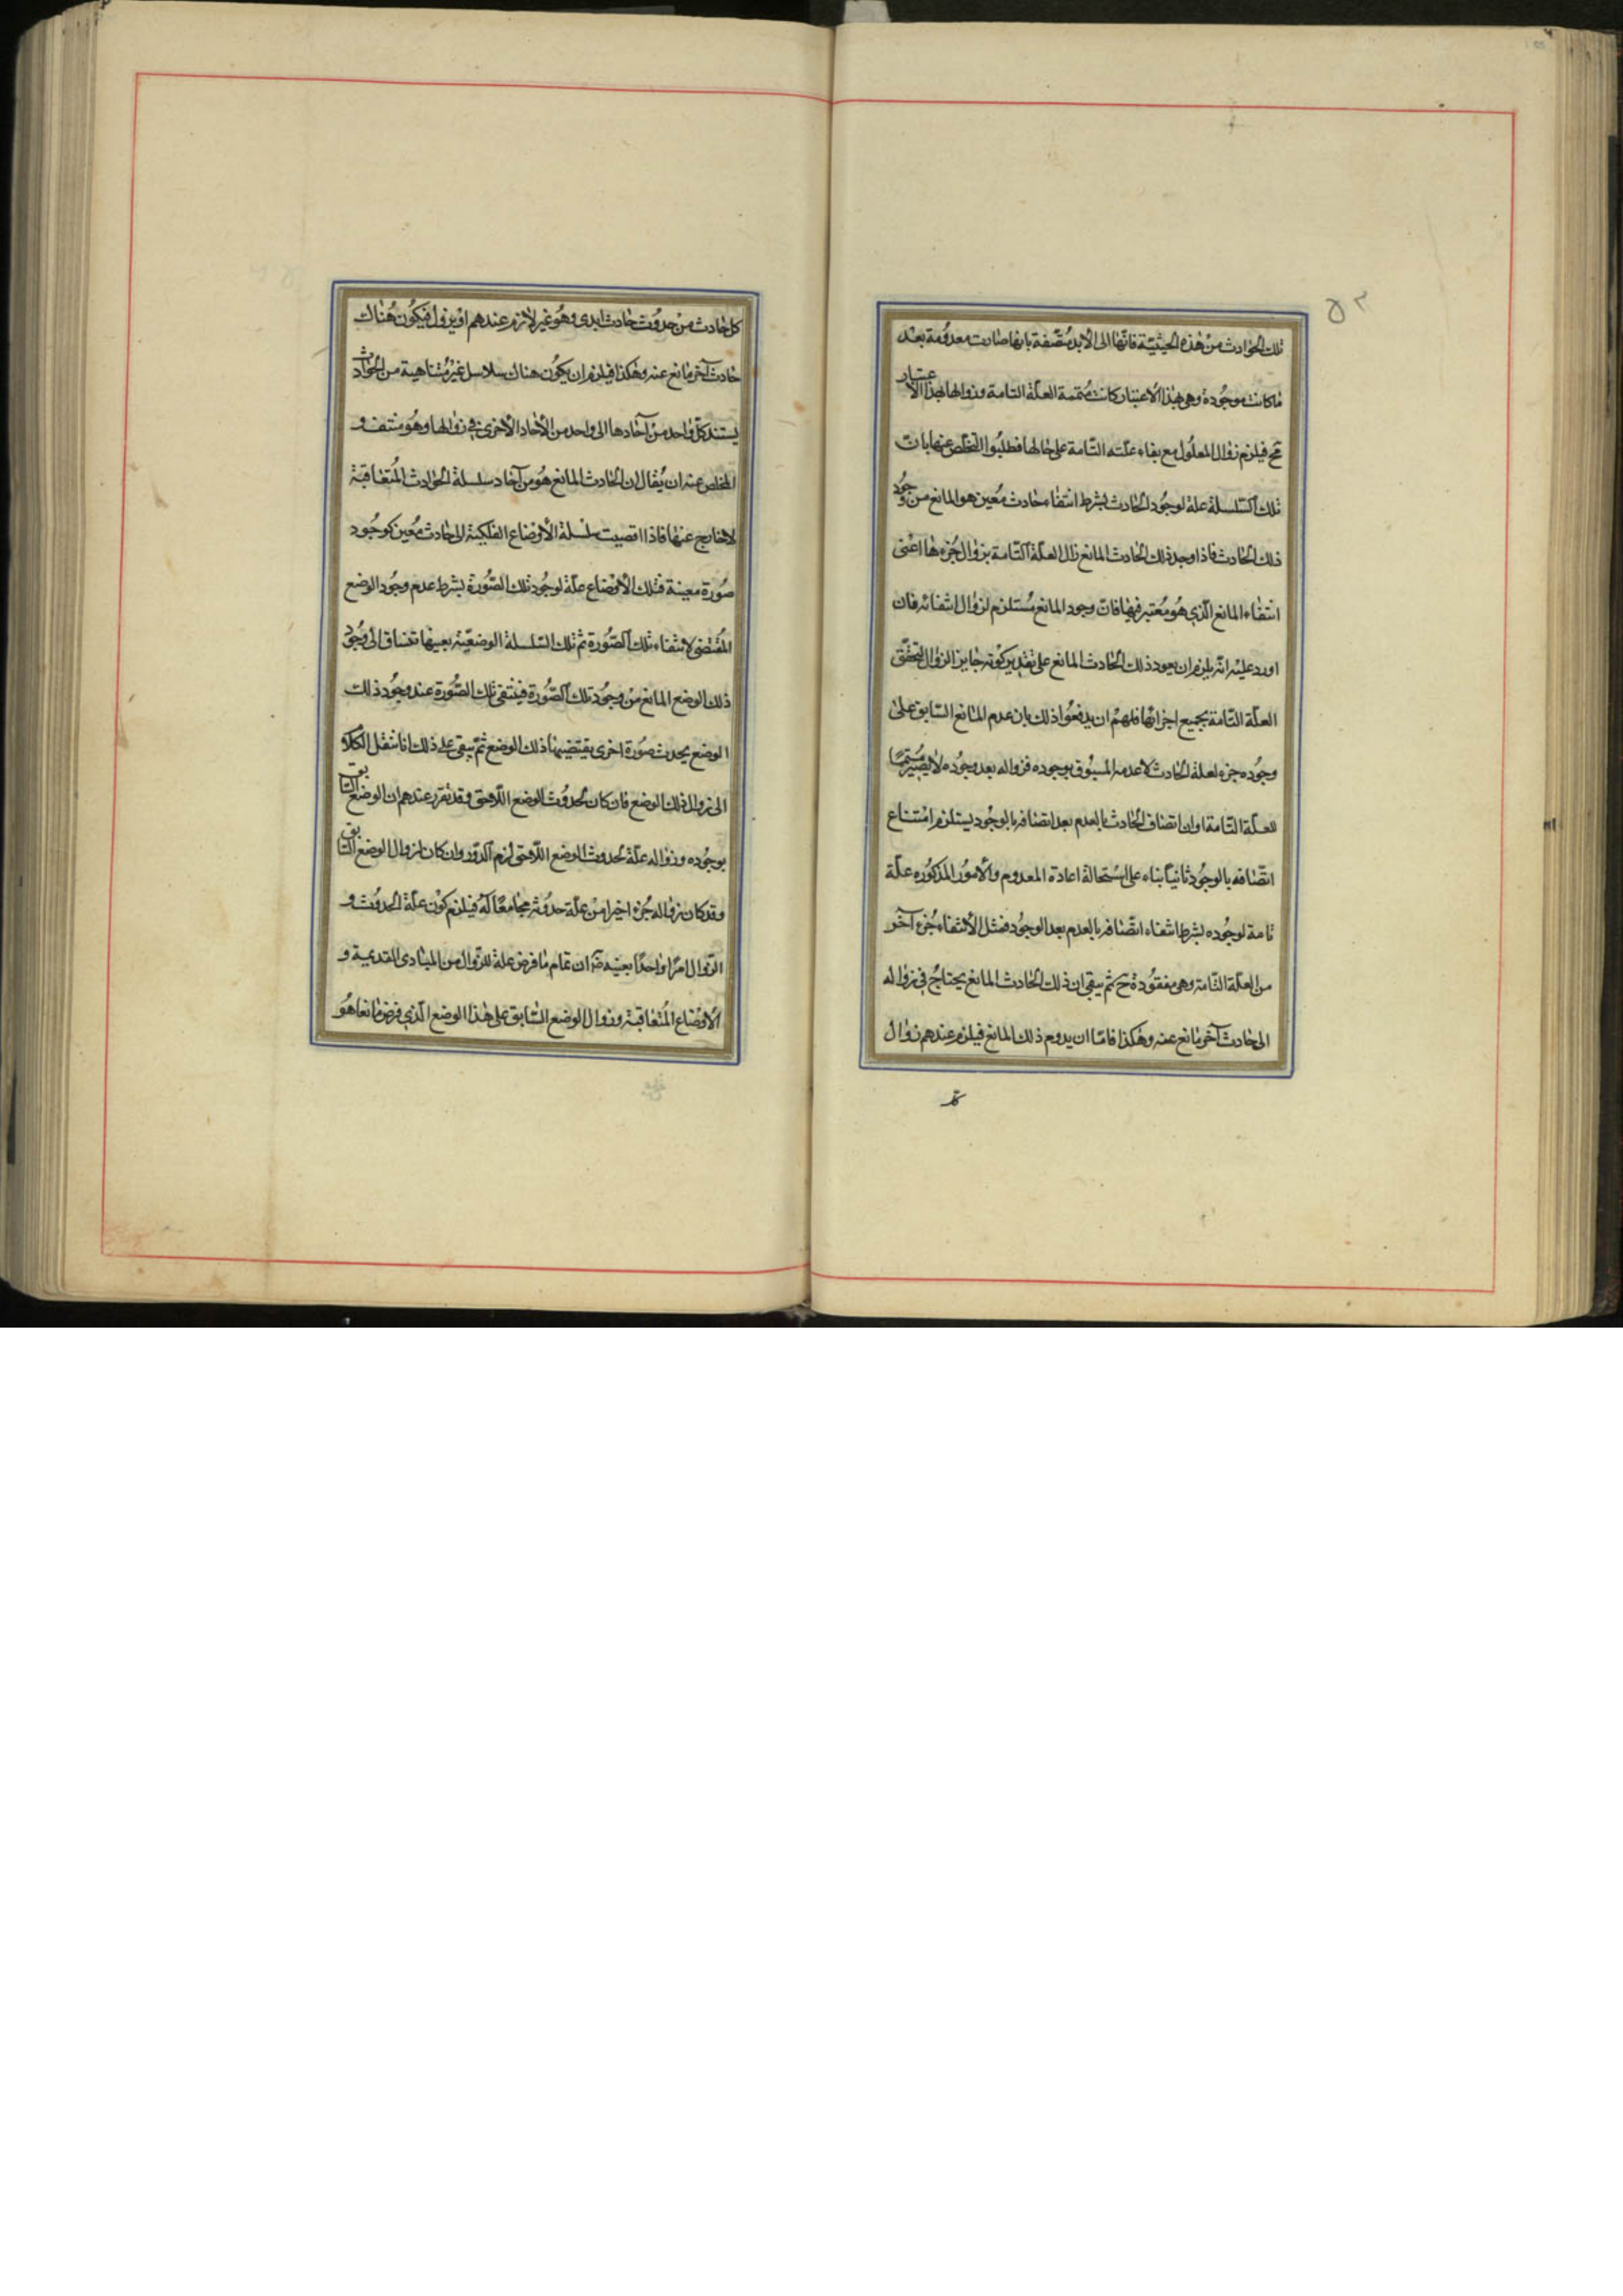 ٥٢
تلك الحوادث من هذه الحيثية فانها الى الأبد متصفة بانها صارت معدومة بعد
ما كانت موجودة وهى بهذا الاعتبار كانت متممة العلة التامة وزوالها بهذا الاعتبار
مح فيلزم زوال المعلول مع بقاء علته التامة على حالها فطلبوا التخلص عنها بان
تلك السلسلة علة لوجود الحادث بشرط انتفاء حادث معين هو المانع من وجود
ذلك الحادث فاذا وجد ذلك الحادث المانع زال العلة التامة بزوال جزءها اعنى
انتفاء المانع الذى هو معتبر فيها فان وجود المانع مستلزم لزوال انتفائه فان
اورد عليه انه يلزم ان يعود ذلك الحادث المانع على تقدير كونه جايز الزوال لتحقق
العلة التامة بجميع اجزائها فلهم ان يدفعوا ذلك بان عدم المانع السابق على
وجوده جزء لعلة الحادث لا عدمه المسبوق بوجوده فزواله بعد وجوده لا يصير متمما
للعلة التامة او ان اتصاف الحادث بالعدم بعد اتصافه بالوجود يستلزم امتناع
اتصافه بالوجود ثانيا بناء على استحالة اعادة المعدوم والأمور المذكوره علة
تامة لوجوده بشرط انتفاء اتصافه بالعدم بعد الوجود فمثل الانتفاء جزء آخر
من العلة التامة وهى مفقودة ح ثم يبقى ان ذلك الحادث المانع يحتاج فى زواله
الى حادث آخر مانع عنه وهكذا فاما ان يدوم ذلك المانع فيلزم عندهم زوال
كل حادث من حدوث حادث ابدى وهو غير لازم عندهم او يزول فيكون هناك
حادث آخر مانع عنه وهكذا فيلزم ان يكون هناك سلاسل غير متناهية من الحوادث
يستند كل واحد من آحادها الى واحد من الأحاد الأخرى فى زوالها وهو منتف و
المخلص عنه ان يقال ان الحادث المانع هو من آحاد سلسلة الحوادث المتعاقبة
لا خارج عنها فاذا اقضيت سلسلة الأوضاع الفلكية الى حادث معين كوجود
صورة معينة فتلك الأوضاع علة لوجود تلك الصورة بشرط عدم وجود الوضع
المقتضى لانتفاء تلك الصورة ثم تلك السلسلة الوضعية بعينها تنساق الى وجود
ذلك الوضع المانع من وجود تلك الصورة فينتفى تلك الصورة عند وجود ذلك
الوضع يحدث صورة اخرى يقتضيها ذلك الوضع ثم يبقى على ذلك انا ننقل الكلام
الى زوال ذلك الوضع فان كان لحدوث الوضع اللاحق وقد تقرر عندهم ان الوضع السابق
بوجوده وزواله علة لحدوث الوضع اللاحق لزم الدور وان كان لزوال الوضع السابق
وقد كان زواله جزء اخيرا من علة حدوثه مجامعا له فيلزم كون علة الحدوث و
الزوال امرا واحدا بعينه ضرَ ان تمام ما فرض علة للزوال من المبادى القديمة و
الأوضاع المتعاقبة وزوال الوضع السابق على هذا الوضع الذى فرض مانعا هو